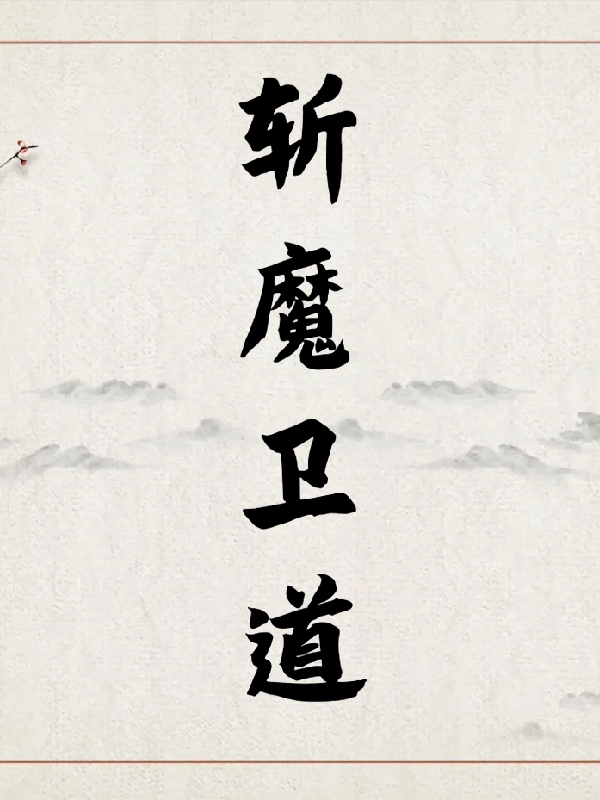 斩魔卫道